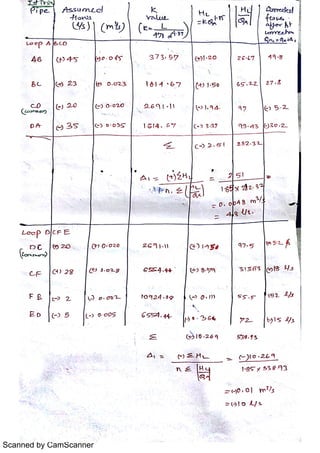 Ist Trial
Pipe Assumed flows (L/s) (m³/s) K value (K = L / 471 d^4.87) HL = KQa^1.85 |HL/Qa| Corrected flows after 1st correction
Loop ABCD
AB (+) 45 (+) 0.045 373.57 (+) 1.20 26.67 49.8
BC (+) 23 (+) 0.023 1614.67 (+) 1.50 65.22 27.8
CD (common) (-) 20 (-) 0.020 2691.11 (-) 1.94 97 (-) 15.2
DA (-) 35 (-) 0.035 1614.67 (-) 3.27 93.43 (-) 30.2
Σ (-) 2.51 282.32
Δ1 = (-) ΣHL / n.Σ(HL/Qa) = 2.51 / 1.85 x 282.32
= 0.0048 m³/s
= 4.8 l/s.
Loop DCFE
DC (common) (+) 20 (+) 0.020 2691.11 (+) 1.94 97.5
CF (+) 28 (+) 0.028 6554.44 (+) 18 l/s
FE (-) 2 (-) 0.002 10924.09 (-) 0.111 55.5 12 l/s
ED (-) 5 (-) 0.005 6554.44 (-) 0.36 72 (-) 15 l/s
Σ (+) 10.269 538.93
Δ1 = (-) ΣHL / n Σ |HL/Qa| = (-) 10.269 / 1.85 x 538.93
= (-) 0.01 m³/s
= (-) 10 l/s
Scanned by CamScanner